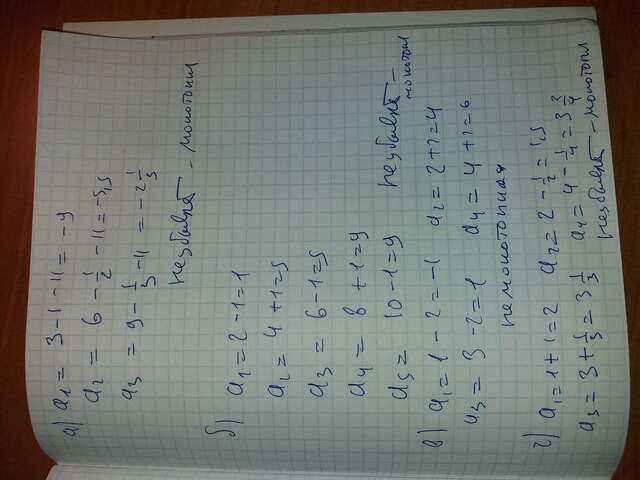 а) a₁ = 3 - 1 - 11 = -9
a₂ = 6 - 1/2 - 11 = -5,5
a₃ = 9 - 1/3 - 11 = -2 1/3
неубывает - монотонна
б) a₁ = 2 - 1 = 1
a₂ = 4 + 1 = 5
a₃ = 6 - 1 = 5
a₄ = 8 + 1 = 9
a₅ = 10 - 1 = 9 неубывает -
монотон
в) a₁ = 1 - 2 = -1 a₂ = 2 + 2 = 4
a₃ = 3 - 2 = 1 a₄ = 4 + 2 = 6
немонотонная
г) a₁ = 1 + 1 = 2 a₂ = 2 - 1/2 = 1,5
a₃ = 3 + 1/3 = 3 1/3 a₄ = 4 - 1/4 = 3 3/4
неубывает - монотон